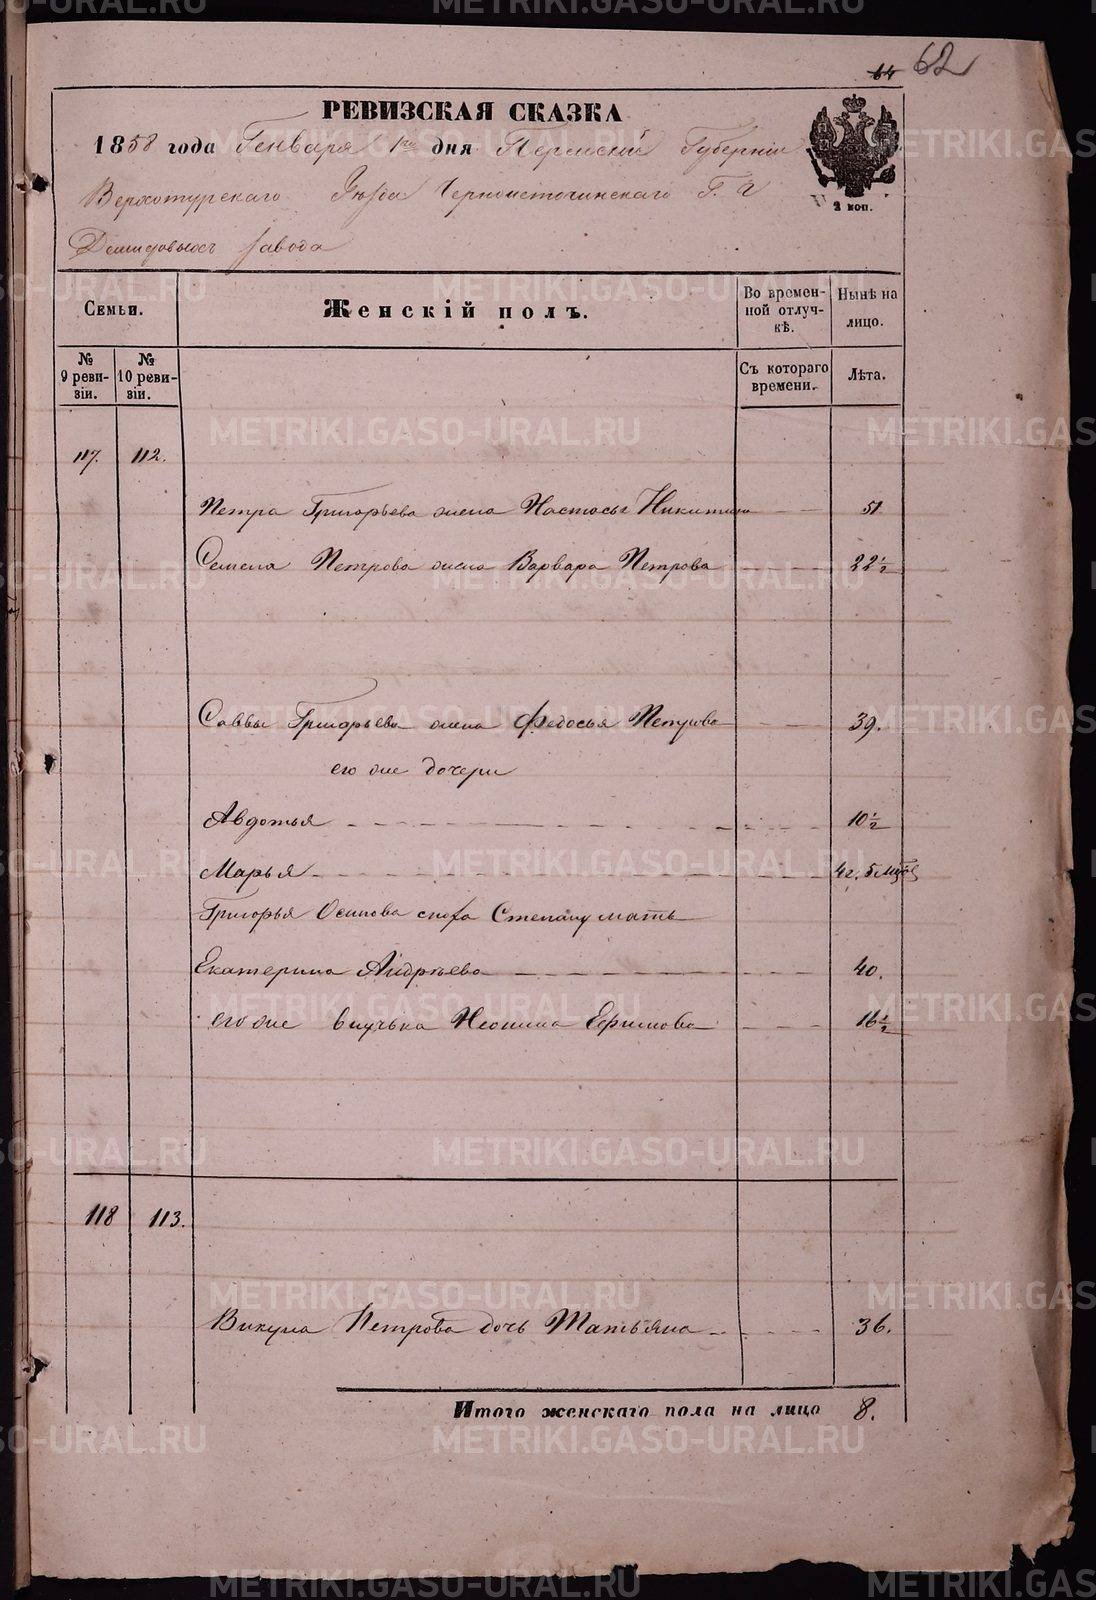 64 62
РЕВИЗСКАЯ СКАЗКА
1858 года Генваря 1го дня Пермской Губерніи
2 коп.
Верхотурскаго Уѣзда Черноисточинскаго Г. Г
Демидовыхъ завода
Семьи.
Женскій полъ.
Во времен-
ной отлуч-
кѣ.
Нынѣ на
лицо.
№
9 реви-
зіи.
№
10 реви-
зіи.
Съ котораго
времени.
Лѣта.
117. 112.
Петра Григорьева жена Настасья Никитина 51
Семена Петрова жена Варвара Петрова 22½
Саввы Григорьева жена Федосья Петрова 39.
его же дочери
Авдотья 10½
Марья 4г. 5 мцов
Григорья Осипова сноха Степану мать
Екатерина Андрѣева 40.
его же внучька Неонила Ефимова 16½
118 113.
Викула Петрова дочь Татьяна 36.
Итого женскаго пола на лицо 8.
METRIKI.GASO-URAL.RU